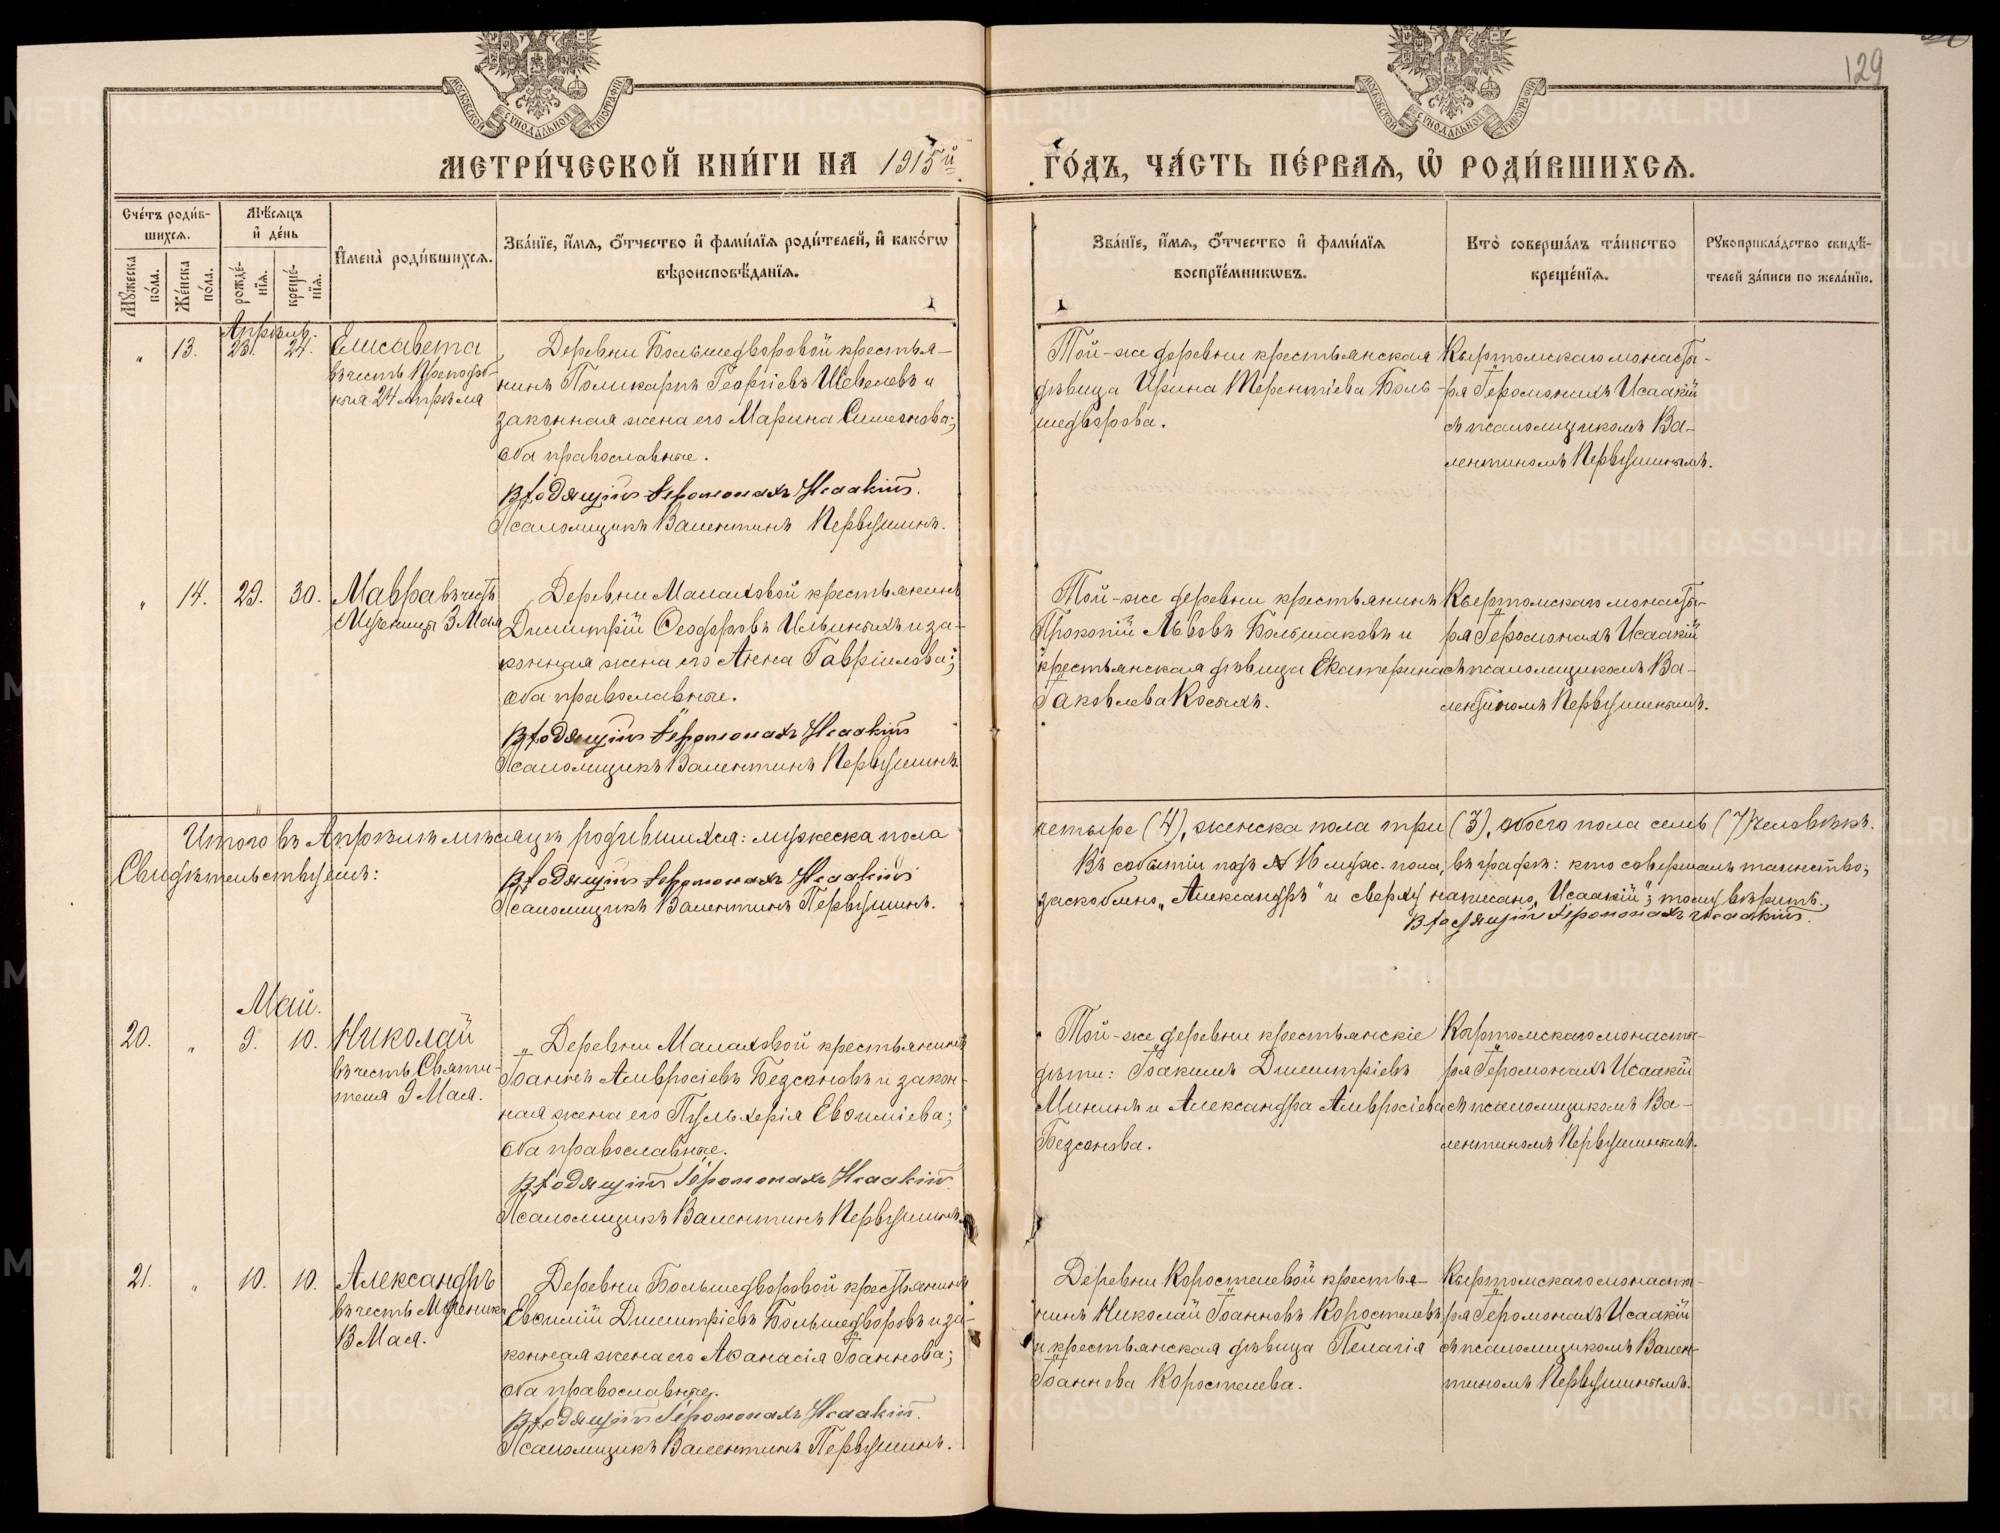 129
МОСКОВСКОЙ СѴНОДАЛЬНОЙ ТИПОГРАФІИ
МОСКОВСКОЙ СѴНОДАЛЬНОЙ ТИПОГРАФІИ
МЕТРИ́ЧЕСКОЙ КНИ́ГИ НА 1915й
ГО́ДЪ, ЧА́СТЬ ПЕ́РВАѦ, Ѽ РОДИ́ВШИХСѦ.
Сче́тъ роди́в-
шихсѧ.
Мѣ́сѧцъ
и҆ де́нь
Мꙋ́жеска
по́ла.
Же́нска
по́ла.
рожде́-
нїѧ.
креще́-
нїѧ.
И҆мена̀ роди́вшихсѧ.
Зва́нїе, и҆́мѧ, ѻ҆́тчество и҆ фами́лїѧ роди́телей, и҆ како́гѡ
вѣроисповѣ́данїѧ.
Зва́нїе, и҆́мѧ, ѻ҆́тчество и҆ фами́лїѧ
воспрїе́мникѡвъ.
Кто̀ соверша́лъ та́инство
креще́нїѧ.
Рꙋкоприкла́дство свидѣ́-
телей за́писи по жела́нїю.
Апрѣль.
„ 13. 23. 24. Елисавета
въ честь Преподоб-
ныя 24 Апрѣля
Деревни Большедворовой крестья-
нинъ Поликарпъ Георгіевъ Шевелевъ и
законная жена его Марина Симеонова;
оба православные.
Входящій Іеромонахъ Исаакій.
Псаломщикъ Валентинъ Первушинъ.
Той-же деревни крестьянская
дѣвица Ирина Терентіева Боль-
шедворова.
Кыртомскаго монасты-
ря Іеромонахъ Исаакій
съ псаломщикомъ Ва-
лентиномъ Первушинымъ.
„ 14. 29. 30. Мавра въ честь
Мученицы 3 Мая
Деревни Малаховой крестьянинъ
Димитрій Ѳеодоровъ Ильиныхъ и за-
конная жена его Анна Гавріилова;
оба православные.
Входящій Іеромонахъ Исаакій
Псаломщикъ Валентинъ Первушинъ.
Той-же деревни крестьянинъ
Прокопій Львовъ Большаковъ и
крестьянская дѣвица Екатерина
Іаковлева Косыхъ.
Кыртомскаго монасты-
ря Іеромонахъ Исаакій
съ псаломщикомъ Ва-
лентиномъ Первушинымъ.
Итого въ Апрѣлѣ мѣсяцѣ родившихся: мужеска пола
четыре (4), женска пола три (3), обоего пола семь (7) человѣкъ.
Свидѣтельствуемъ:
Входящій Іеромонахъ Исаакій
Псаломщикъ Валентинъ Первушинъ.
Въ событіи подъ № 16 муж. пола, въ графѣ: кто совершалъ таинство,
заскоблено „Александръ" и сверху написано „Исаакій"; тому вѣрить.
Входящій Іеромонахъ Исаакій.
Май.
20. „ 9. 10. Николай
въ честь Святи-
теля 9 Мая.
Деревни Малаховой крестьянинъ
Іоаннъ Амвросіевъ Безсоновъ и закон-
ная жена его Пульхерія Евѳиміева;
оба православные.
Входящій Іеромонахъ Исаакій
Псаломщикъ Валентинъ Первушинъ.
Той-же деревни крестьянскіе
дѣти: Іоакимъ Димитріевъ
Мининъ и Александра Амвросіева
Безсонова.
Кыртомскаго монасты-
ря Іеромонахъ Исаакій
съ псаломщикомъ Ва-
лентиномъ Первушинымъ.
21. „ 10. 10. Александръ
въ честь Мученика
13 Мая.
Деревни Большедворовой крестьянинъ
Евѳимій Димитріевъ Большедворовъ и за-
конная жена его Аѳанасія Іоаннова;
оба православные.
Входящій Іеромонахъ Исаакій.
Псаломщикъ Валентинъ Первушинъ.
Деревни Коростелевой крестья-
нинъ Николай Іоанновъ Коростелевъ
и крестьянская дѣвица Пелагія
Іоаннова Коростелева.
Кыртомскаго монасты-
ря Іеромонахъ Исаакій
съ псаломщикомъ Вален-
тиномъ Первушинымъ.
METRIKI.GASO-URAL.RU